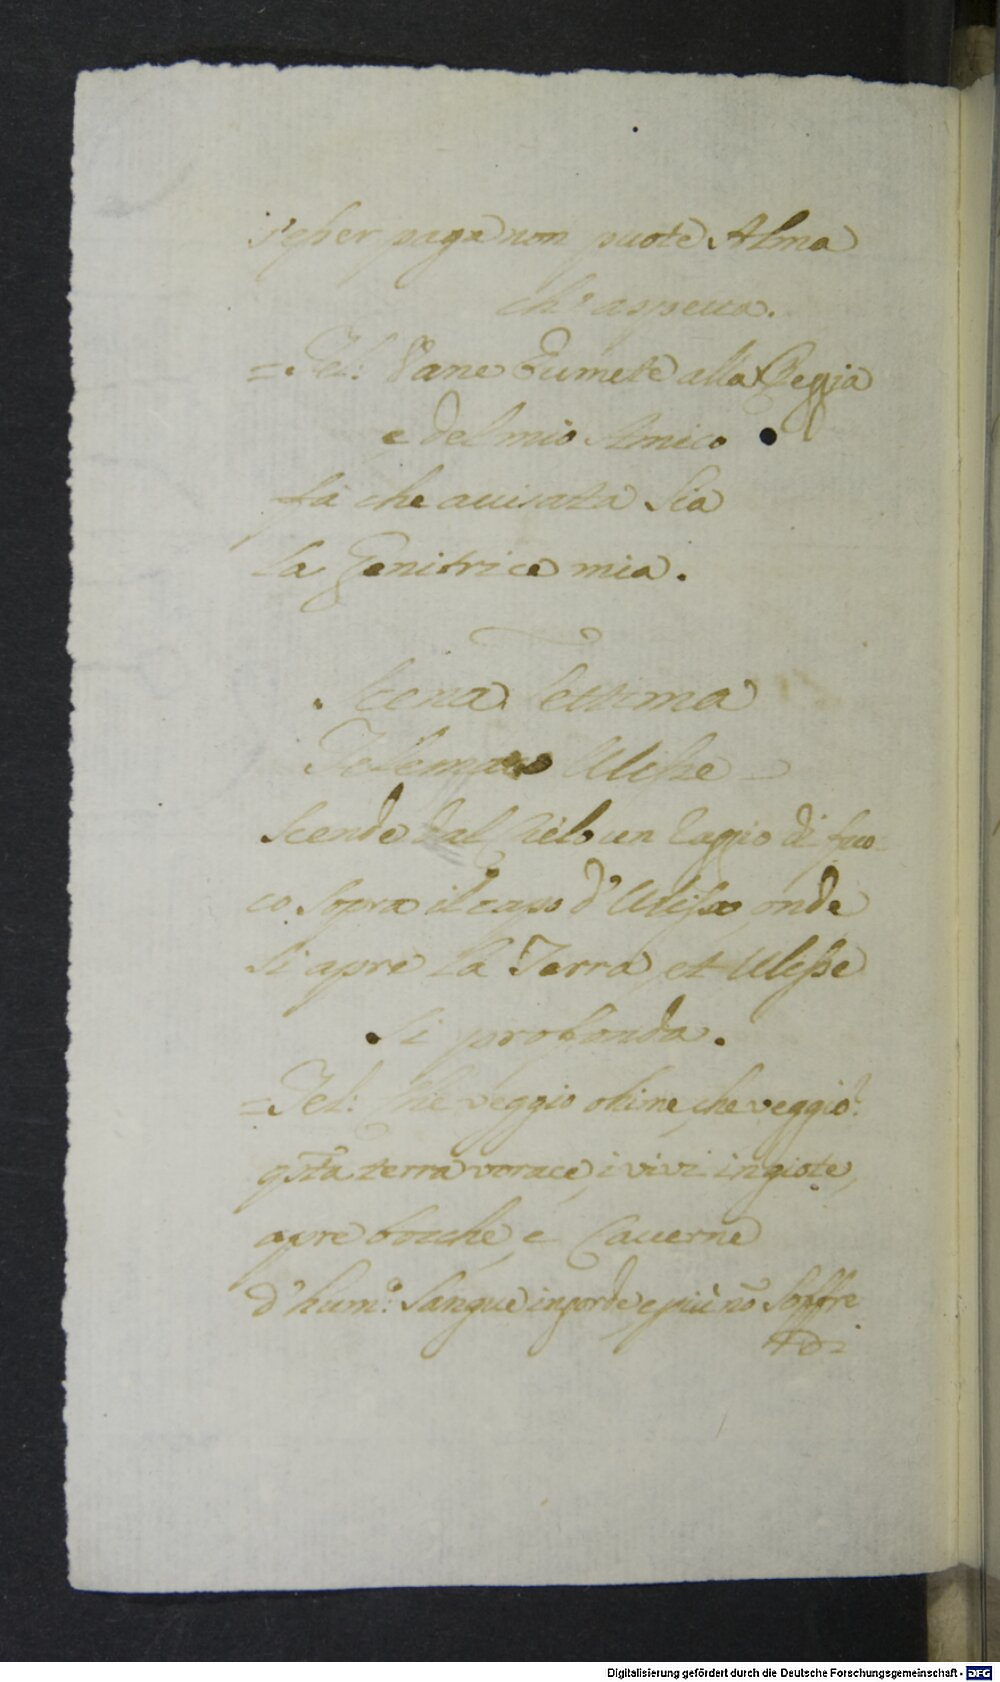 s'esser paga non puote Alma
ch'aspetta.
= Tel: Vane Eumete alla Reggia
e del mio Amico
fà che auisata sia
la Genitrice mia.
Scena Settima
Telemaco Ulisse
Scende dal Cielo un raggio di fuo-
co sopra il capo d'Ulisse, onde
si apre la Terra, et Ulisse
si profonda.
= Tel: Che veggio ohime, che veggio?
qsta terra vorace i vivi ingiote,
apre bocche, e Cauerne
d'humo: sangue ingorde, e più nõ soffre
di
Digitalisierung gefördert durch die Deutsche Forschungsgemeinschaft - DFG